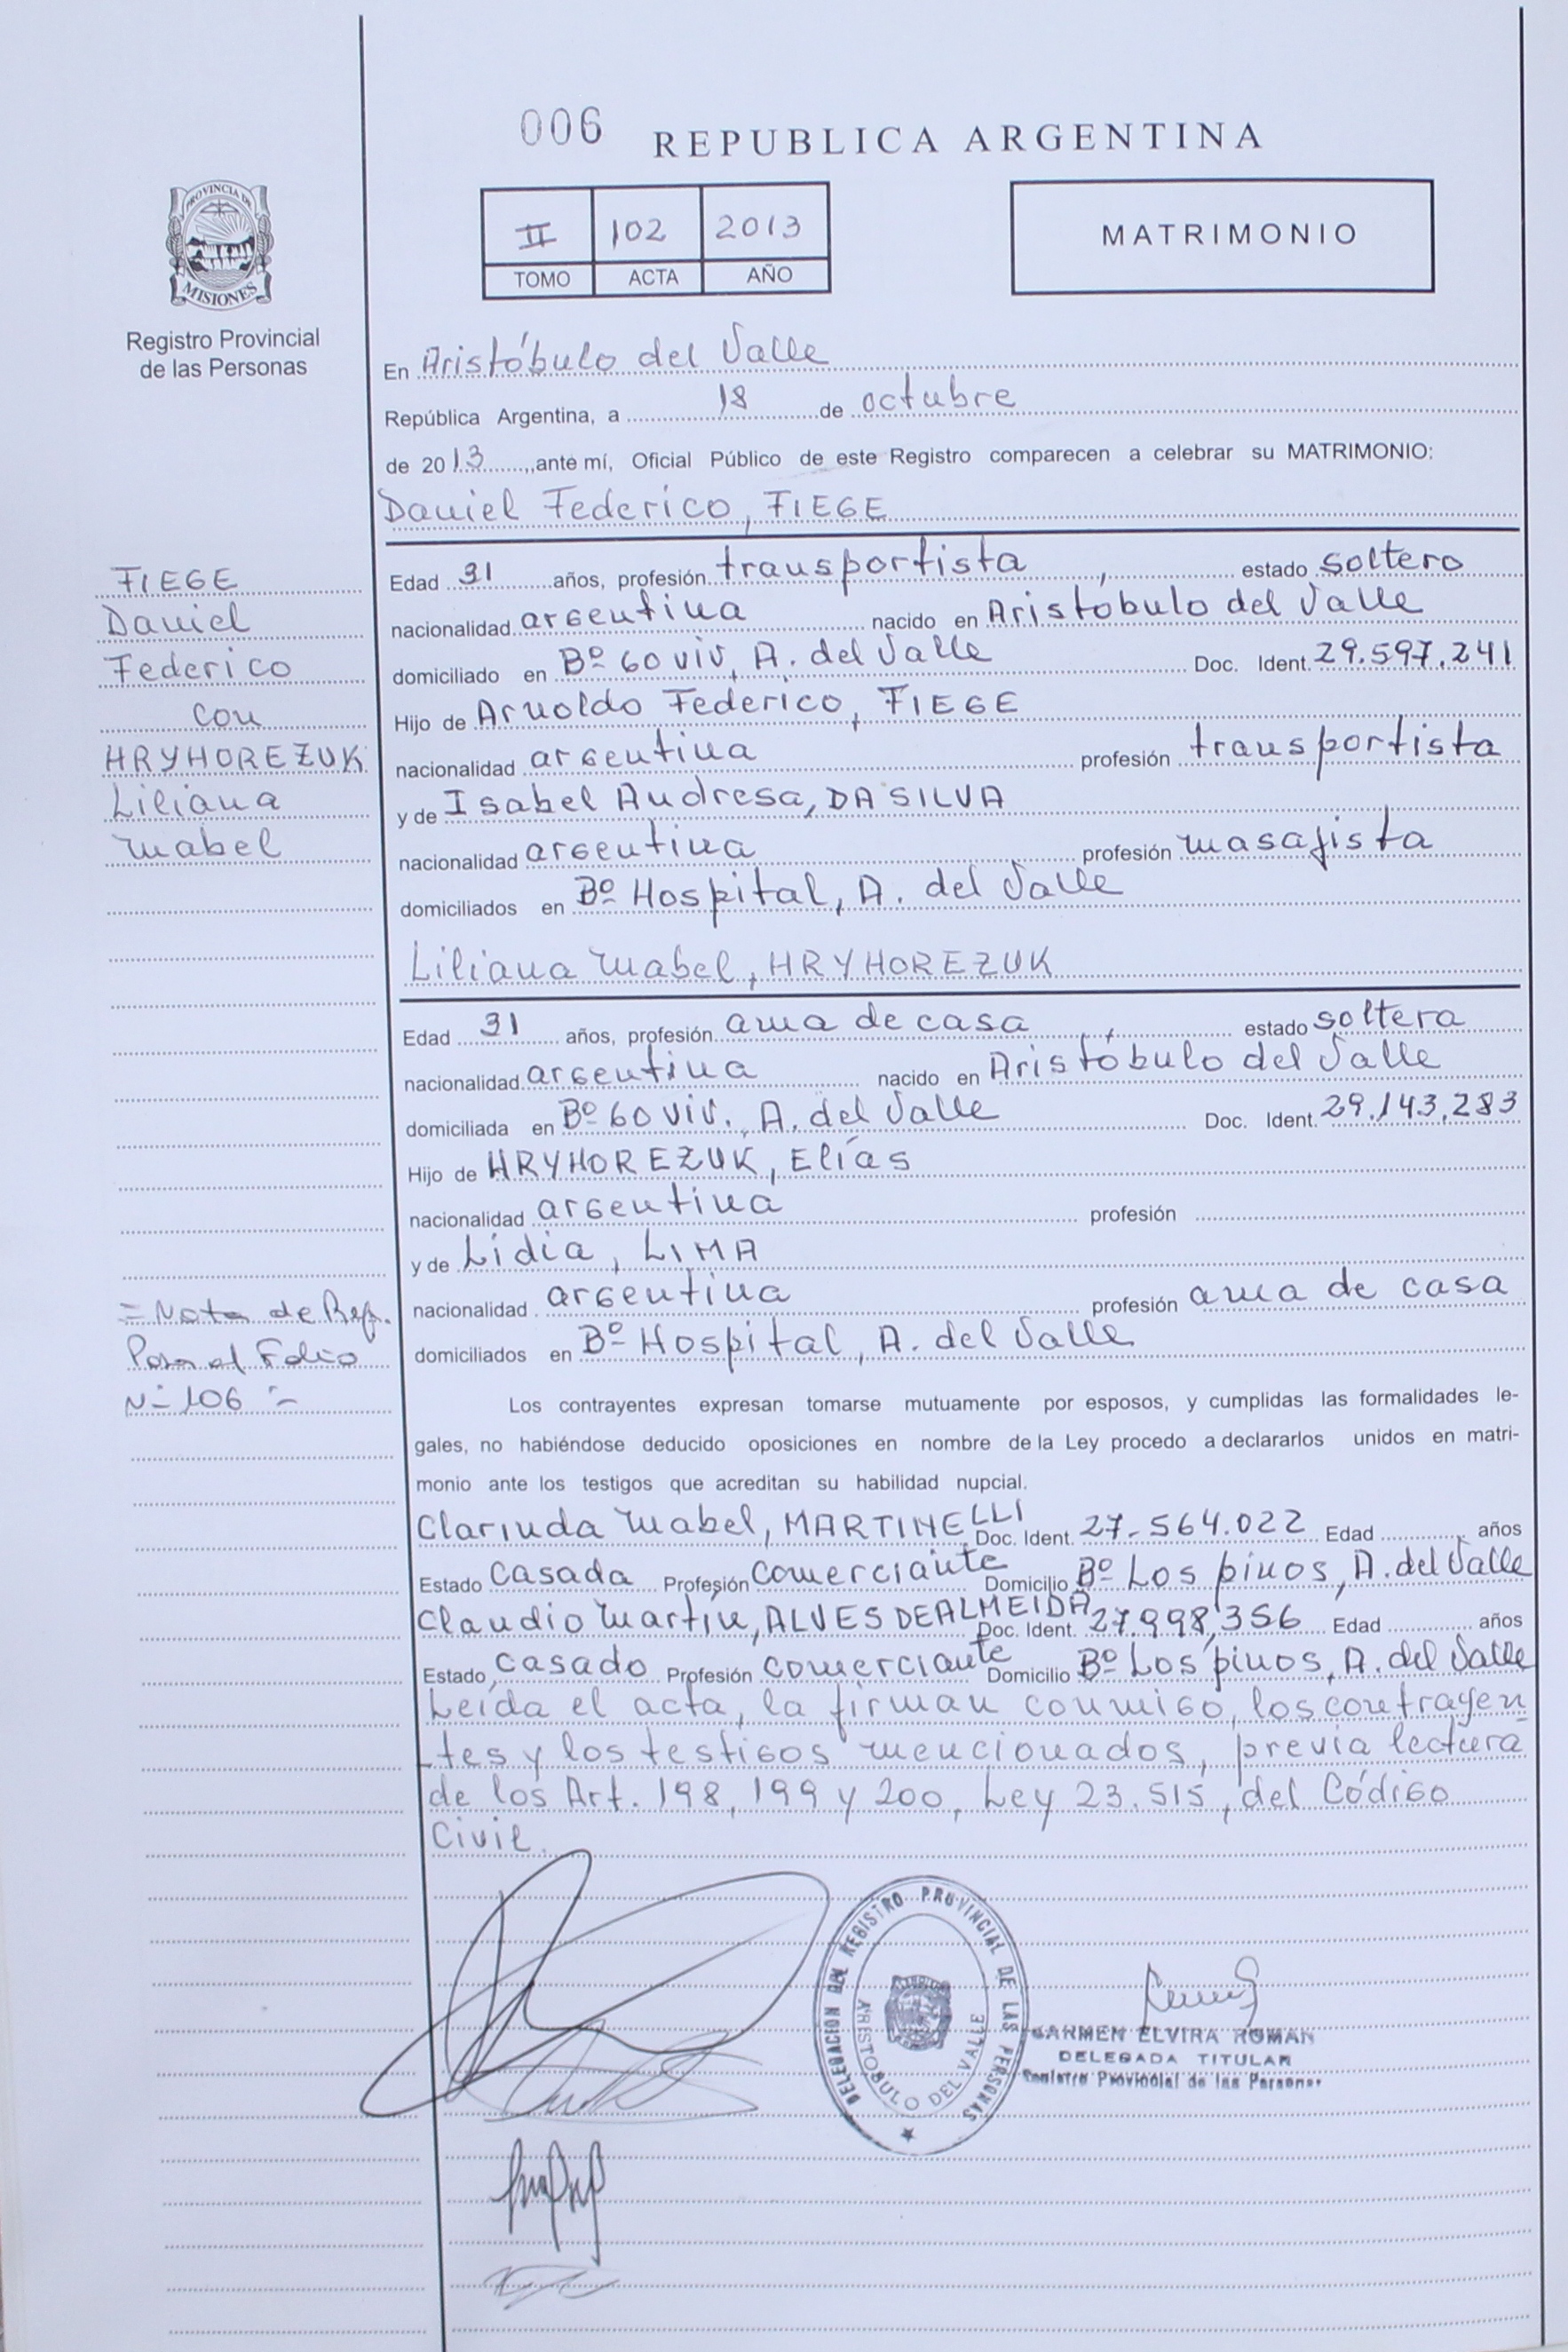 006 REPUBLICA ARGENTINA
PROVINCIA DE
MISIONES
Registro Provincial
de las Personas
II 102 2013
TOMO ACTA AÑO
MATRIMONIO
En Aristóbulo del Valle
República Argentina, a 18 de octubre
de 2013, ante mí, Oficial Público de este Registro comparecen a celebrar su MATRIMONIO:
Daniel Federico, FIEGE
FIEGE
Daniel
Federico
con
HRYHOREZUK
Liliana
Mabel
Edad 31 años, profesión transportista, estado soltero
nacionalidad argentina nacido en Aristóbulo del Valle
domiciliado en Bº 60 viv, A. del Valle Doc. Ident. 29.597.241
Hijo de Arnoldo Federico, FIEGE
nacionalidad argentina profesión transportista
y de Isabel Andresa, DA SILVA
nacionalidad argentina profesión masajista
domiciliados en Bº Hospital, A. del Valle
Liliana Mabel, HRYHOREZUK
Edad 31 años, profesión ama de casa, estado soltera
nacionalidad argentina nacido en Aristóbulo del Valle
domiciliada en Bº 60 viv., A. del Valle Doc. Ident. 29.143.283
Hijo de HRYHOREZUK, Elías
nacionalidad argentina profesión
y de Lidia, LIMA
nacionalidad argentina profesión ama de casa
domiciliados en Bº Hospital, A. del Valle
= Nota de Ref.
Pasa al Folio
Nº 106 =
Los contrayentes expresan tomarse mutuamente por esposos, y cumplidas las formalidades le-
gales, no habiéndose deducido oposiciones en nombre de la Ley procedo a declararlos unidos en matri-
monio ante los testigos que acreditan su habilidad nupcial.
Clarinda Mabel, MARTINELLI Doc. Ident. 27.564.022 Edad años
Estado casada Profesión comerciante Domicilio Bº Los pinos, A. del Valle
Claudio Martín, ALVES DE ALMEIDA Doc. Ident. 27.998.356 Edad años
Estado casado Profesión comerciante Domicilio Bº Los pinos, A. del Valle
Leída el acta, la firman conmigo, los contrayen
tes y los testigos mencionados, previa lectura
de los Art. 198, 199 y 200, Ley 23.515, del Código
Civil.
DELEGACION DEL REGISTRO PROVINCIAL DE LAS PERSONAS
ARISTOBULO DEL VALLE
CARMEN ELVIRA ROMAN
DELEGADA TITULAR
Registro Provincial de las Personas